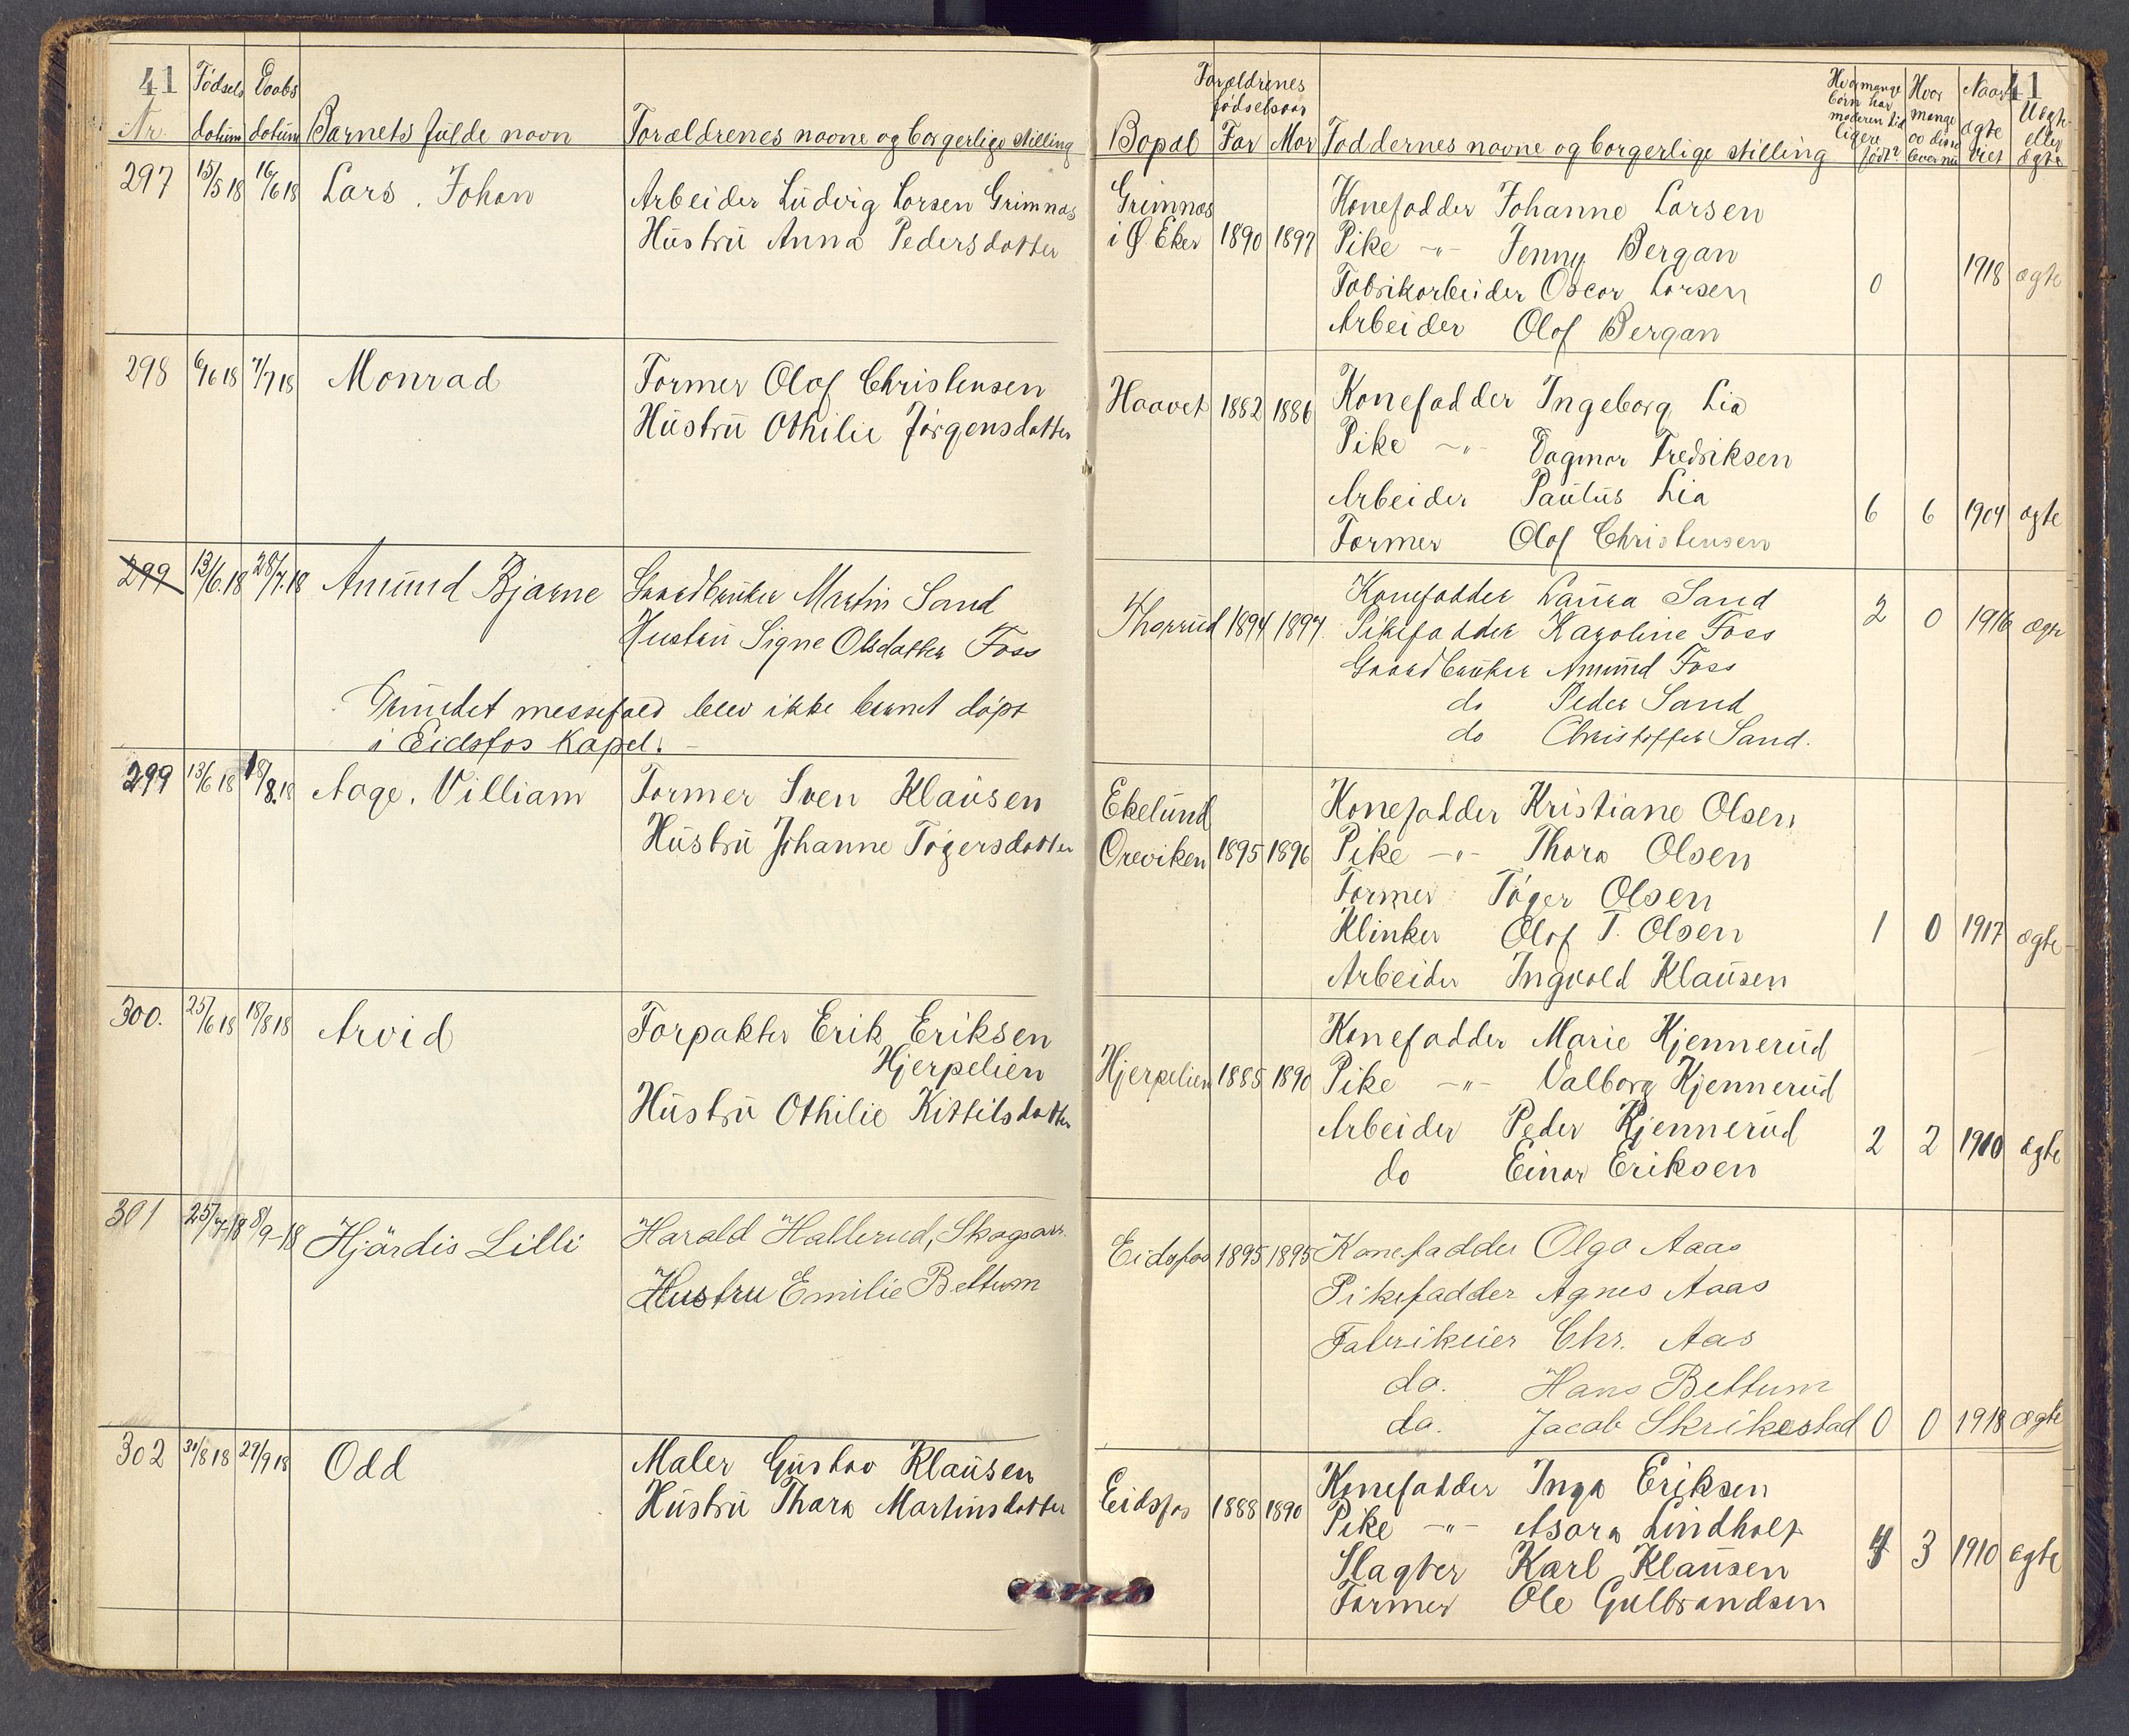 41
Nr.
Fødsels datum
Daabs datum
Barnets fulde navn
Forældrenes navne og borgerlige stilling
297 15/5 18 16/6 18 Lars. Johan
Arbeider Ludvig Larsen Grimnæs
Hustru Anna Pedersdatter
298 6/6 18 7/7 18 Monrad
Former Olaf Christensen
Hustru Othilie Jørgensdatter
299 13/6.18 28/7.18 Amund Bjarne
Gaardbruker Martin Sand
Hustru Signe Olsdatter Foss
Grundet messefald blev ikke barnet døpt
i Eidsfos Kapel.
299 13/6 18 18/8.18 Aage. Villiam
Former Sven Klausen
Hustru Johanne Tøgersdatter
300. 25/6 18 18/8 18 Arvid
Forpakter Erik Eriksen
Hjerpelien
Hustru Othilie Kittilsdatter
301 25/7 18 8/9-18 Hjördis Lilli
Harald Hallerud, Skogsarb.
Hustru Emilie Bettum
302 31/8 18 29/9 18 Odd
Maler Gustav Klausen
Hustru Thara Martinsdatter
41
Bopæl
Forældrenes fødselsaar
Far Mor
Faddernes navne og borgerlige stilling
Hvormange børn har moderen tidligere født?
Hvor mange av disse lever nu
Naar ægteviet
Uægte eller ægte
Grimnæs
i Ø. Eker 1890 1897
Konefadder Johanne Larsen
Pike -"- Jenny Bergan
Fabrikarbeider Oscar Larsen
Arbeider Olaf Bergan
0 1918 ægte
Haavet 1882 1886
Konefadder Ingeborg Lia
Pike -"- Dagmar Fredriksen
Arbeider Paulus Lia
Former Olaf Christensen
6 6 1904 ægte
Thorrud 1894 1897
Konefadder Laura Sand
Pikefadder Karoline Foss
Gaardbruker Amund Foss
do Peder Sand
do Christoffer Sand.
2 0 1916 ægte
Ekelund
Oreviken 1895 1896
Konefadder Kristiane Olsen
Pike -"- Thora Olsen
Former Tøger Olsen
Klinker Olaf T. Olsen
Arbeider Ingvald Klausen
1 0 1917 ægte
Hjerpelien 1885 1890
Konefadder Marie Kjennerud
Pike -"- Valborg Kjennerud
Arbeider Peder Kjennerud
do Einar Eriksen
2 2 1910 ægte
Eidsfos 1895 1895
Konefadder Olga Aaas
Pikefadder Agnes Aaas
Fabrikeier Chr. Aas
do. Hans Bettum
do. Jacob Skrikestad
0 0 1918 ægte
Eidsfos 1888 1890
Konefadder Inga Eriksen
Pike -"- Asora Lindholf
Slagter Karl Klausen
Former Ole Gulbrandsen
4 3 1910 ægte